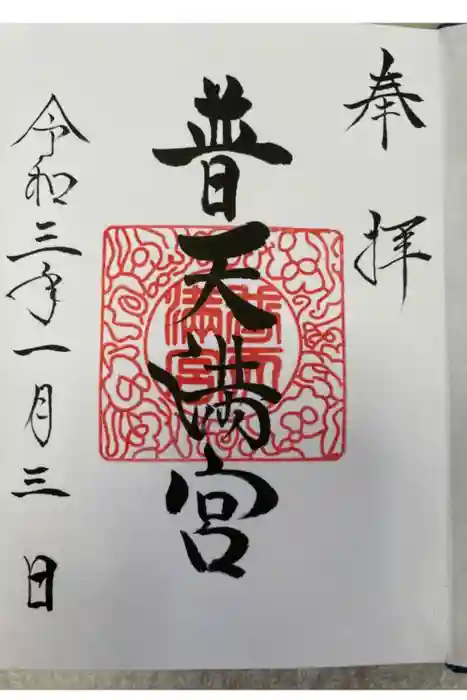 奉拝
普天満宮
令和三年一月三日